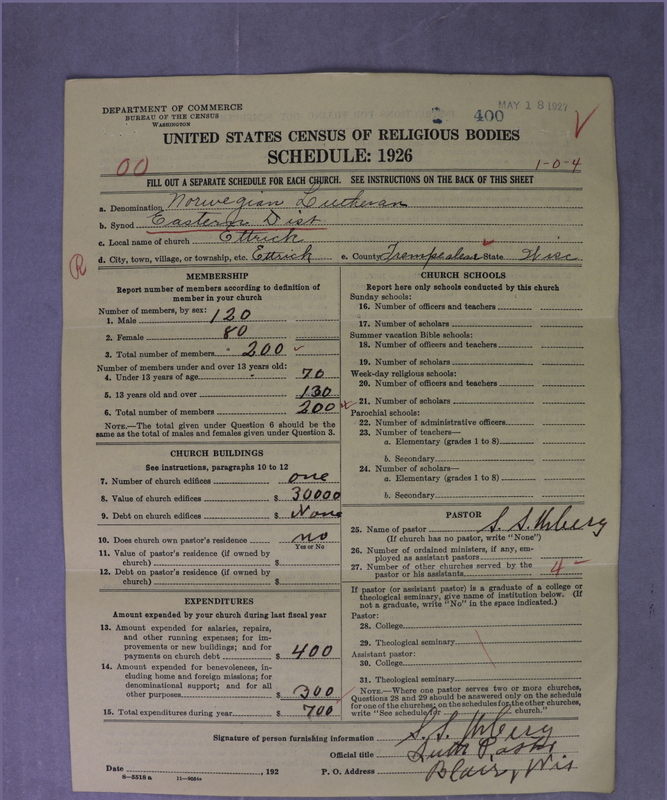 DEPARTMENT OF COMMERCE
BUREAU OF THE CENSUS
WASHINGTON
400
MAY 18 1927
UNITED STATES CENSUS OF RELIGIOUS BODIES
SCHEDULE: 1926
00
1-0-4
FILL OUT A SEPARATE SCHEDULE FOR EACH CHURCH. SEE INSTRUCTIONS ON THE BACK OF THIS SHEET
a. Denomination Norwegian Lutheran
b. Synod Eastern Dist
c. Local name of church Ettrick
d. City, town, village, or township, etc. Ettrick e. County Trempealeau State Wisc
R
MEMBERSHIP
Report number of members according to definition of
member in your church
Number of members, by sex:
1. Male 120
2. Female 80
3. Total number of members 200
Number of members under and over 13 years old:
4. Under 13 years of age 70
5. 13 years old and over 130
6. Total number of members 200
NOTE.—The total given under Question 6 should be the
same as the total of males and females given under Question 3.
CHURCH BUILDINGS
See instructions, paragraphs 10 to 12
7. Number of church edifices one
8. Value of church edifices $ 30000
9. Debt on church edifices $ None
10. Does church own pastor's residence no
Yes or No
11. Value of pastor's residence (if owned by
church) $
12. Debt on pastor's residence (if owned by
church) $
EXPENDITURES
Amount expended by your church during last fiscal year
13. Amount expended for salaries, repairs,
and other running expenses; for im-
provements or new buildings; and for
payments on church debt $ 400
14. Amount expended for benevolences, in-
cluding home and foreign missions; for
denominational support; and for all
other purposes $ 300
15. Total expenditures during year $ 700
CHURCH SCHOOLS
Report here only schools conducted by this church
Sunday schools:
16. Number of officers and teachers
17. Number of scholars
Summer vacation Bible schools:
18. Number of officers and teachers
19. Number of scholars
Week-day religious schools:
20. Number of officers and teachers
21. Number of scholars
Parochial schools:
22. Number of administrative officers
23. Number of teachers—
a. Elementary (grades 1 to 8)
b. Secondary
24. Number of scholars—
a. Elementary (grades 1 to 8)
b. Secondary
PASTOR
25. Name of pastor S. S. Urberg
(If church has no pastor, write "None")
26. Number of ordained ministers, if any, em-
ployed as assistant pastors
27. Number of other churches served by the
pastor or his assistants 4
If pastor (or assistant pastor) is a graduate of a college or
theological seminary, give name of institution below. (If
not a graduate, write "No" in the space indicated.)
Pastor:
28. College
29. Theological seminary
Assistant pastor:
30. College
31. Theological seminary
NOTE.—Where one pastor serves two or more churches,
Questions 28 and 29 should be answered only on the schedule
for one of the churches; on the schedules for the other churches,
write "See schedule for church."
Signature of person furnishing information S. S. Urberg
Official title Luth Pastor
Date , 192 P. O. Address Blair, Wis
8-5518 a